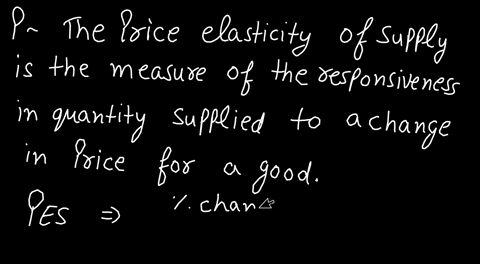 P~ The Price elasticity of supply
is the measure of the responsiveness
in quantity supplied to a change
in Price for a good.
PES ⇒ %. chan